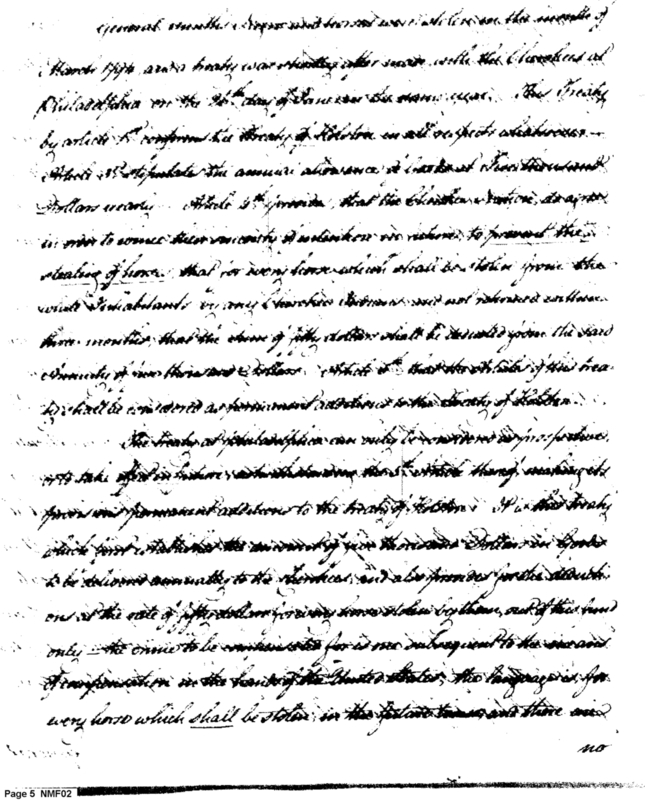 General Smith's Negro and horses were stolen in the month of
March 1794 and a treaty was shortly after made with the Cherokees at
Philadelphia on the 26th day of June in the same year. This Treaty
by article 1st confirms the treaty of Holston in all respects whatsoever—
Article 3rd stipulates the annual allowance of Goods at Five thousand
Dollars yearly. Article 4th provides, that the Cherokee Nation, do agree
in order to evince their sincerity of intention in future to prevent the
stealing of horses that for every horse which shall be stolen from the
white Inhabitants by any Cherokee Indians and not returned within
three months that the sum of fifty dollars shall be deducted from the said
Annuity of five thousand Dollars. Article 5th that the Articles of this trea-
ty shall be considered as permanent additions to the Treaty of Holston.
The treaty at Philadelphia can only be considered as prospective,
or to take effect in future, notwithstanding the 5th Article thereof making its
provisions permanent additions to the treaty of Holston. It is that treaty
which first establishes the amount of five thousand Dollars in Goods
to be delivered annually to the Cherokees, and also provides for the deducti-
ons at the rate of fifty dollars for every horse stolen by them, out of this fund
only — the crime to be compensated for is one subsequent to the means
of compensation in the hands of the United States; the language is, for
every horse which shall be stolen, in the future tense, and there can
no
Page 5 NMF02